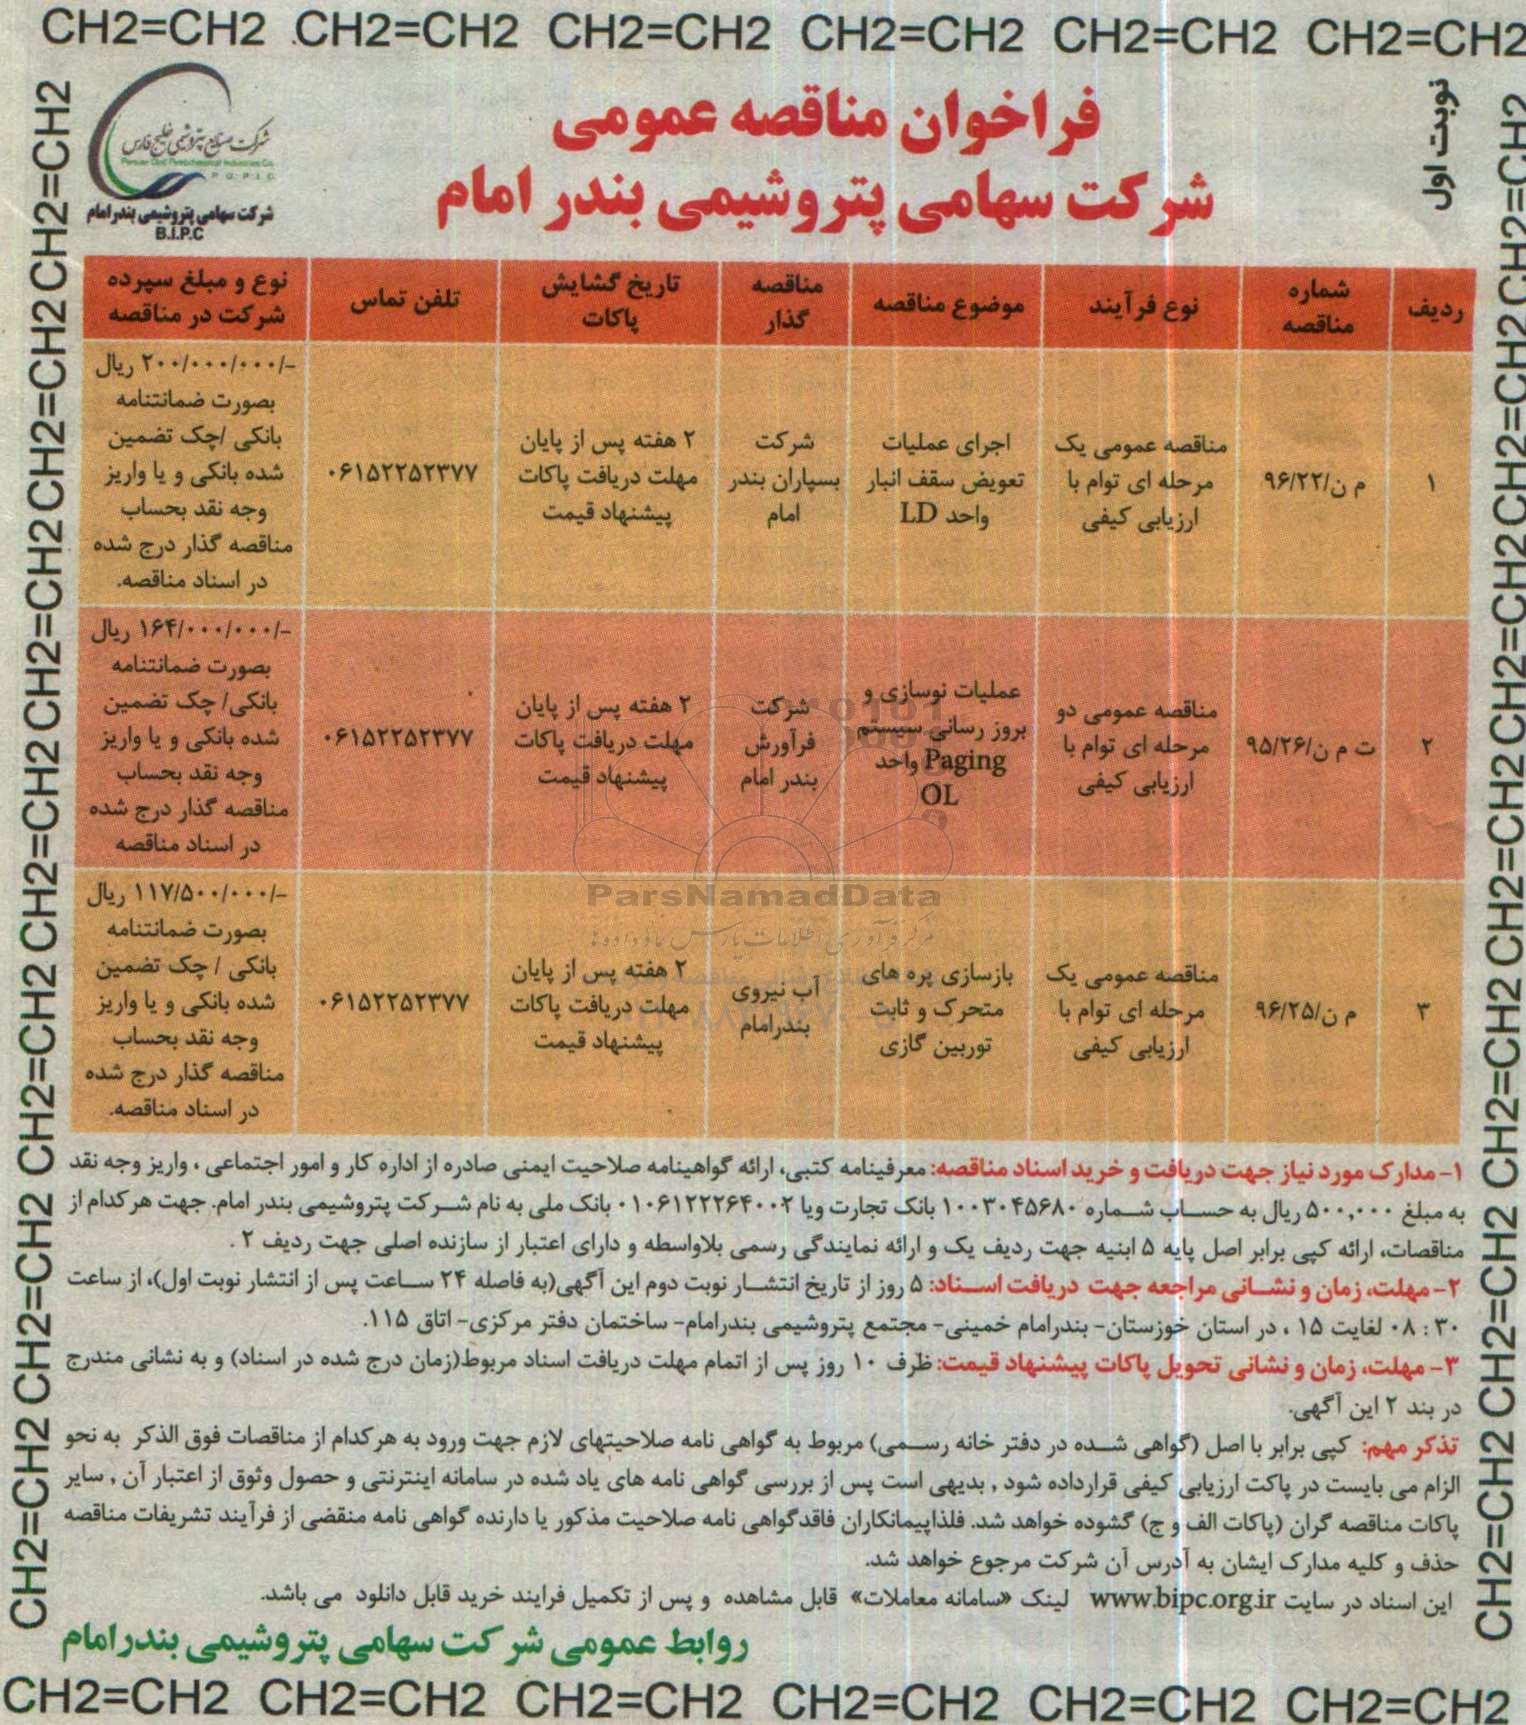 CH2=CH2 CH2=CH2 CH2=CH2 CH2=CH2 CH2=CH2 CH2=CH2
نوبت اول
فراخوان مناقصه عمومی
شرکت سهامی پتروشیمی بندر امام
شرکت صنایع پتروشیمی خلیج فارس
Persian Gulf Petrochemical Industries Co.
P.G.P.I.C
شرکت سهامی پتروشیمی بندر امام
B.I.P.C
ردیف
شماره
مناقصه
نوع فرآیند
موضوع مناقصه
مناقصه
گذار
تاریخ گشایش
پاکات
تلفن تماس
نوع و مبلغ سپرده
شرکت در مناقصه
۱
م ن/۹۶/۲۲
مناقصه عمومی یک
مرحله ای توام با
ارزیابی کیفی
اجرای عملیات
تعویض سقف انبار
واحد LD
شرکت
بسپاران بندر
امام
۲ هفته پس از پایان
مهلت دریافت پاکات
پیشنهاد قیمت
۰۶۱۵۲۲۵۲۳۷۷
۲۰۰/۰۰۰/۰۰۰/- ریال
بصورت ضمانتنامه
بانکی /چک تضمین
شده بانکی و یا واریز
وجه نقد بحساب
مناقصه گذار درج شده
در اسناد مناقصه.
۲
ت م ن/۹۵/۲۶
مناقصه عمومی دو
مرحله ای توام با
ارزیابی کیفی
عملیات نوسازی و
بروز رسانی سیستم
Paging واحد
OL
شرکت
فرآورش
بندر امام
۲ هفته پس از پایان
مهلت دریافت پاکات
پیشنهاد قیمت
۰۶۱۵۲۲۵۲۳۷۷
۱۶۴/۰۰۰/۰۰۰/- ریال
بصورت ضمانتنامه
بانکی/ چک تضمین
شده بانکی و یا واریز
وجه نقد بحساب
مناقصه گذار درج شده
در اسناد مناقصه
۳
م ن/۹۶/۲۵
مناقصه عمومی یک
مرحله ای توام با
ارزیابی کیفی
بازسازی پره های
متحرک و ثابت
توربین گازی
آب نیروی
بندرامام
۲ هفته پس از پایان
مهلت دریافت پاکات
پیشنهاد قیمت
۰۶۱۵۲۲۵۲۳۷۷
۱۱۷/۵۰۰/۰۰۰/- ریال
بصورت ضمانتنامه
بانکی / چک تضمین
شده بانکی و یا واریز
وجه نقد بحساب
مناقصه گذار درج شده
در اسناد مناقصه.
ParsNamadData
مرکز فرآوری اطلاعات پارس نماد داده ها
۱- مدارک مورد نیاز جهت دریافت و خرید اسناد مناقصه: معرفینامه کتبی، ارائه گواهینامه صلاحیت ایمنی صادره از اداره کار و امور اجتماعی ، واریز وجه نقد
به مبلغ ۵۰۰,۰۰۰ ریال به حساب شماره ۱۰۰۳۰۴۵۶۸۰ بانک تجارت ویا ۰۱۰۶۱۲۲۲۶۴۰۰۲ بانک ملی به نام شرکت پتروشیمی بندر امام. جهت هرکدام از
مناقصات، ارائه کپی برابر اصل پایه ۵ ابنیه جهت ردیف یک و ارائه نمایندگی رسمی بلاواسطه و دارای اعتبار از سازنده اصلی جهت ردیف ۲ .
۲- مهلت، زمان و نشانی مراجعه جهت دریافت اسناد: ۵ روز از تاریخ انتشار نوبت دوم این آگهی(به فاصله ۲۴ ساعت پس از انتشار نوبت اول)، از ساعت
۰۸ : ۳۰ لغایت ۱۵ ، در استان خوزستان- بندرامام خمینی- مجتمع پتروشیمی بندرامام- ساختمان دفتر مرکزی- اتاق ۱۱۵.
۳- مهلت، زمان و نشانی تحویل پاکات پیشنهاد قیمت: ظرف ۱۰ روز پس از اتمام مهلت دریافت اسناد مربوط(زمان درج شده در اسناد) و به نشانی مندرج
در بند ۲ این آگهی.
تذکر مهم: کپی برابر با اصل (گواهی شده در دفتر خانه رسمی) مربوط به گواهی نامه صلاحیتهای لازم جهت ورود به هرکدام از مناقصات فوق الذکر به نحو
الزام می بایست در پاکت ارزیابی کیفی قرارداده شود , بدیهی است پس از بررسی گواهی نامه های یاد شده در سامانه اینترنتی و حصول وثوق از اعتبار آن , سایر
پاکات مناقصه گران (پاکات الف و ج) گشوده خواهد شد. فلذاپیمانکاران فاقدگواهی نامه صلاحیت مذکور یا دارنده گواهی نامه منقضی از فرآیند تشریفات مناقصه
حذف و کلیه مدارک ایشان به آدرس آن شرکت مرجوع خواهد شد.
این اسناد در سایت www.bipc.org.ir لینک «سامانه معاملات» قابل مشاهده و پس از تکمیل فرایند خرید قابل دانلود می باشد.
روابط عمومی شرکت سهامی پتروشیمی بندرامام
CH2=CH2 CH2=CH2 CH2=CH2 CH2=CH2 CH2=CH2 CH2=CH2
CH2=CH2 CH2=CH2 CH2=CH2 CH2=CH2 CH2=CH2 CH2=CH2 CH2=CH2
CH2=CH2 CH2=CH2 CH2=CH2 CH2=CH2 CH2=CH2 CH2=CH2 CH2=CH2